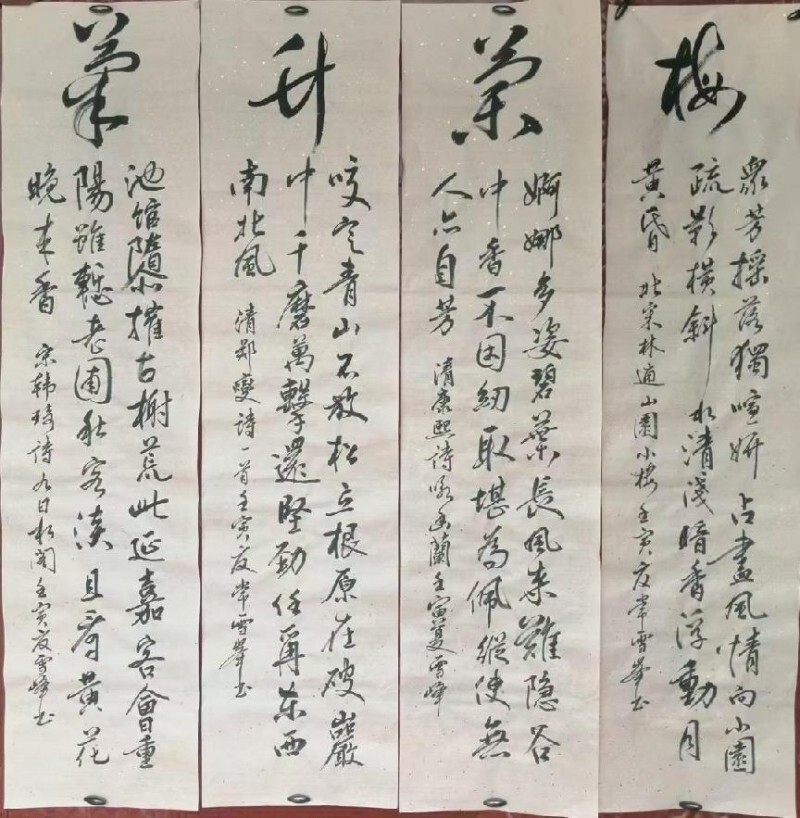 梅
衆芳摇落獨喧妍占盡風情向小園
疏影横斜水清淺暗香浮動月
黄昏 北宋林逋山園小梅壬寅夏常雪峰书
蘭
婀娜多姿碧葉長風来難隐谷
中香不因紉取堪為佩縱使無
人亦自芳 清康熙诗咏幽蘭壬寅夏雪峰
竹
咬定青山不放松立根原在破巖
中千磨萬擊還堅勁任爾东西
南北風 清郑燮诗一首壬寅夏常雪峰书
菊
池馆隳摧古榭荒此延嘉客會重
陽雖慙老圃秋容淡且看黄花
晚来香 宋韩琦诗九日水阁壬寅夏雪峰书